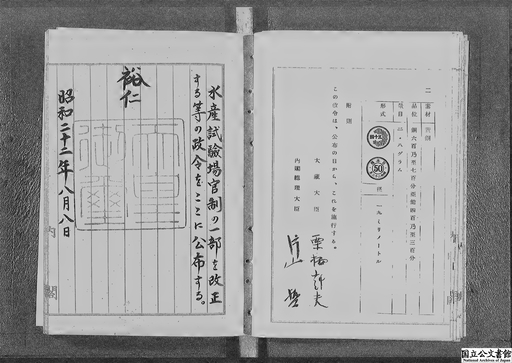 二
素材 黄銅
品位 銅六百乃至七百分亜鉛四百乃至三百分
量目 二・八グラム
形式
五十銭
50
径 一九ミリメートル
附則
この政令は、公布の日から、これを施行する。
大蔵大臣 栗栖赳夫
内閣総理大臣 片山哲
水産試験場官制の一部を改正
する等の政令をここに公布する。
裕仁
天皇御璽
昭和二十二年八月八日
内閣
国立公文書館
National Archives of Japan